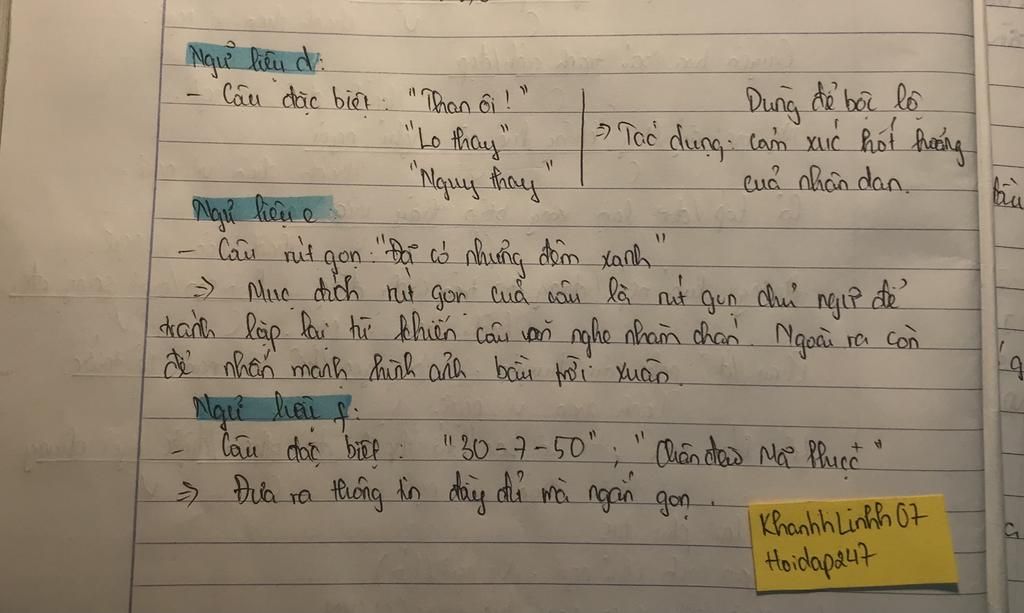 Ngữ liệu d:
- Câu đặc biệt: "Than ôi!"
"Lo thay"
"Nguy thay"
Dùng để bộc lộ
=> Tác dụng: cảm xúc hốt hoảng
của nhân dan.
Ngữ liệu e:
- Câu rút gọn: "Đã có những đêm xanh"
=> Mục đích rút gọn của câu là rút gọn chủ ngữ để
tránh lặp lại từ khiến câu văn nghe nhàm chán. Ngoài ra còn
để nhấn mạnh hình ảnh bầu trời xuân.
Ngữ liệu f:
- Câu đặc biệt: "30-7-50"; "Chân đèo Mã Phục"
=> Đưa ra thông tin đầy đủ mà ngắn gọn.
KhanhhLinhh07
Hoidap247